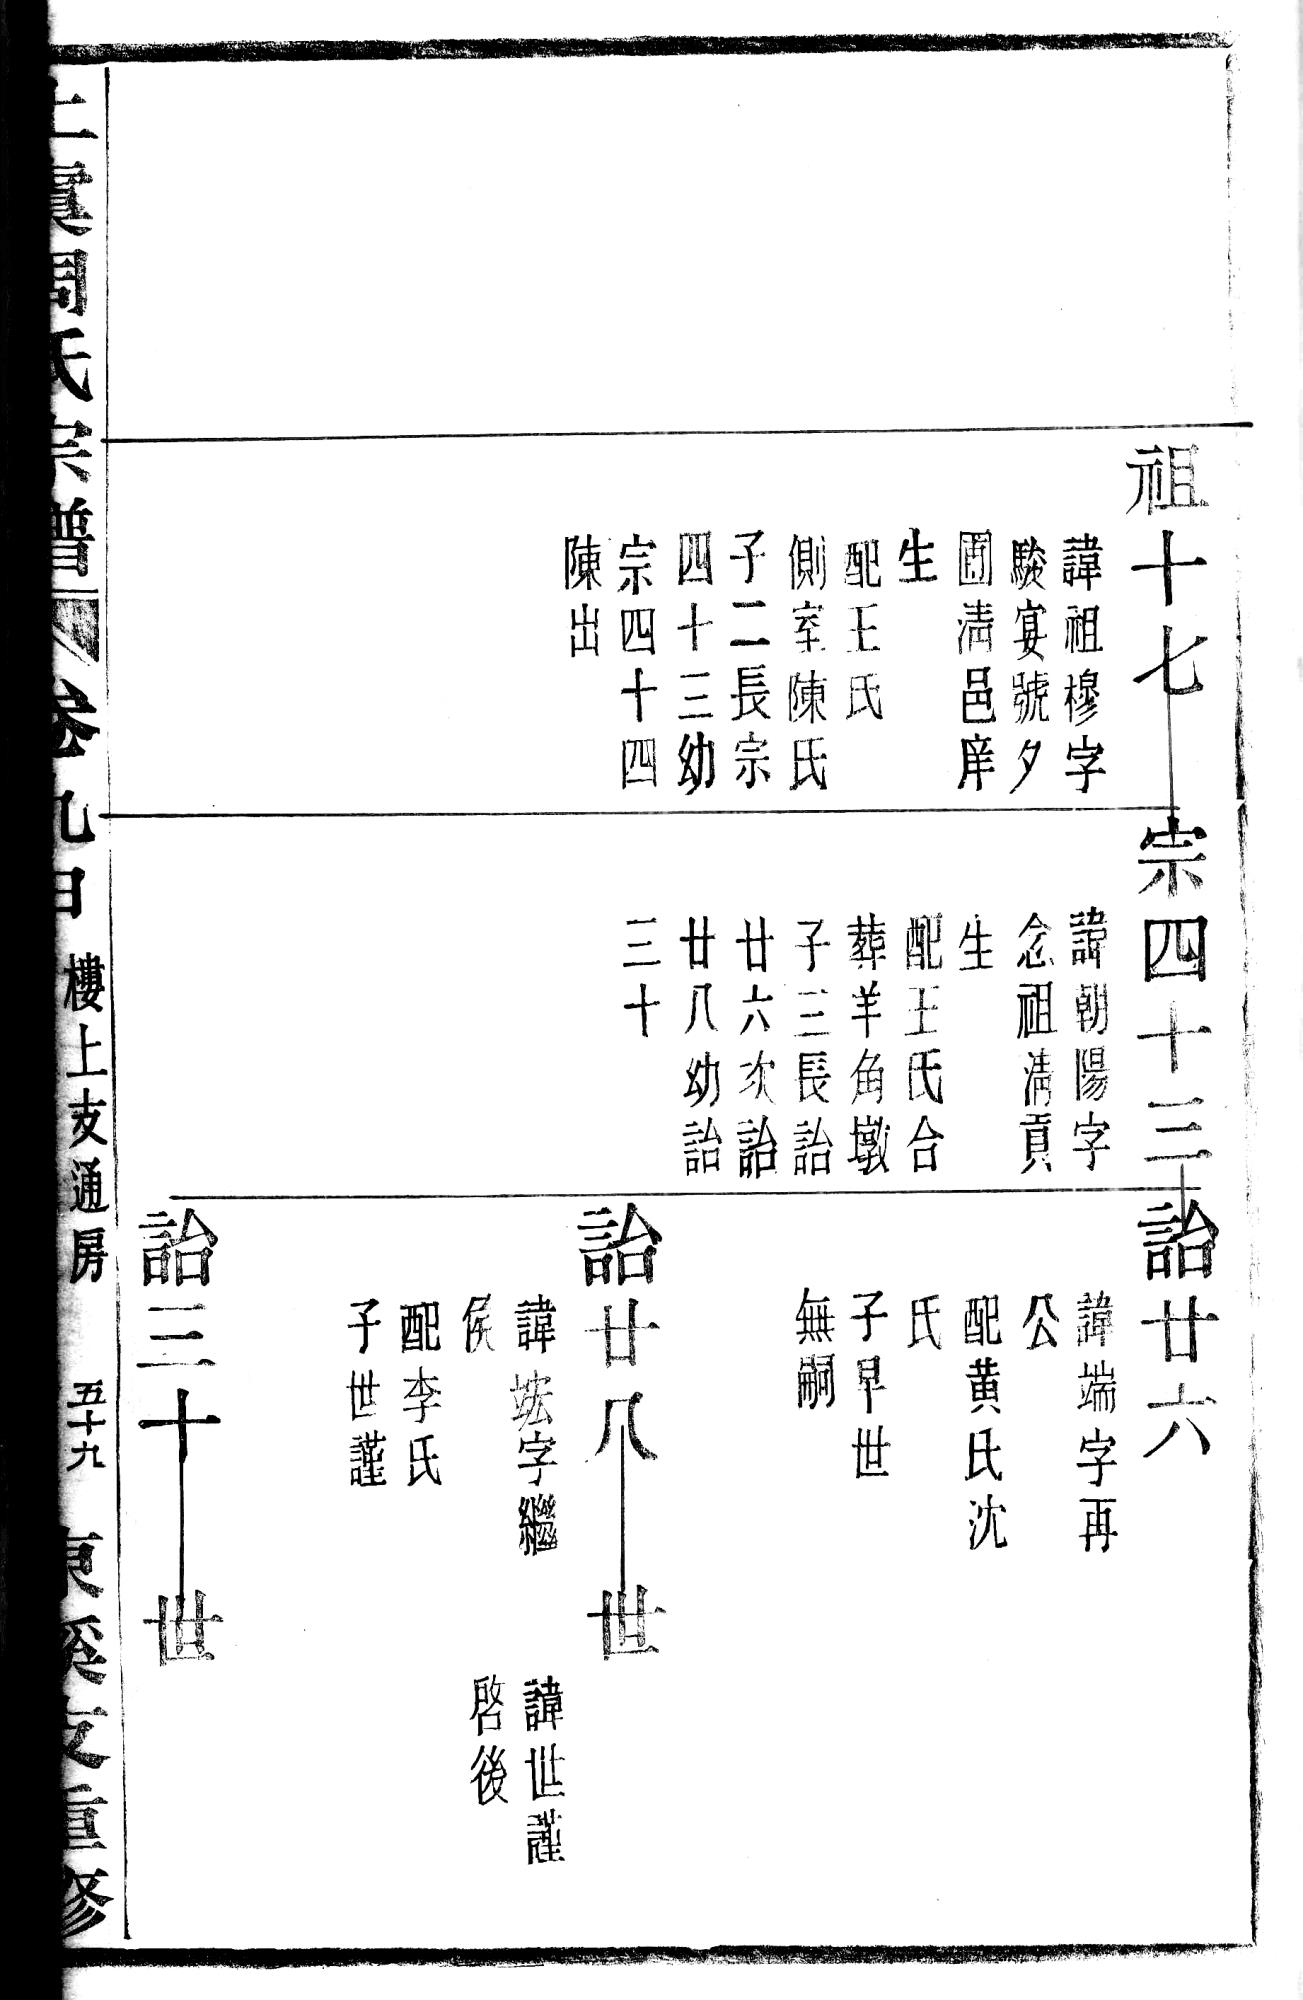 祖十七
諱祖穆字
駿宴號夕
圃淸邑庠
生
配王氏
側室陳氏
子二長宗
四十三幼
宗四十四
陳出
宗四十三
諱朝陽字
念祖淸貢
生
配王氏合
葬羊角墩
子三長詒
廿六次詒
廿八幼詒
三十
詒廿六
諱端字再
公
配黄氏沈
氏
子早世
無嗣
詒廿八
諱竑字繼
侯
配李氏
子世謹
世
諱世謹
啓後
詒三十
世
上虞周氏宗譜
卷九
樓上支通房
五十九
重修